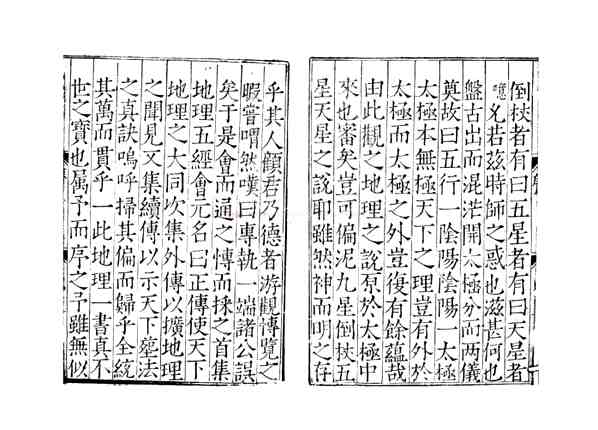 倒杖者有曰五星者有曰天星者
噫乆若兹時師之惑也滋甚何也
盤古出而混茫開太極分而兩儀
奠故曰五行一陰陽陰陽一太極
太極本無極天下之理豈有外於
太極而太極之外豈復有餘蘊哉
由此觀之地理之說原於太極中
來也審矣豈可偏泥九星倒杖五
星天星之說耶雖然神而明之存
乎其人顧君乃德者游觀博覽之
暇嘗喟然嘆曰專執一端諸公誤
矣于是會而通之慱而採之首集
地理五經會元名曰正傳使天下
地理之大同次集外傳以擴地理
之聞見又集續傳以示天下塟法
之真訣嗚呼掃其偏而歸乎全統
其萬而貫乎一此地理一書真不
世之寶也属予而序之予雖無似